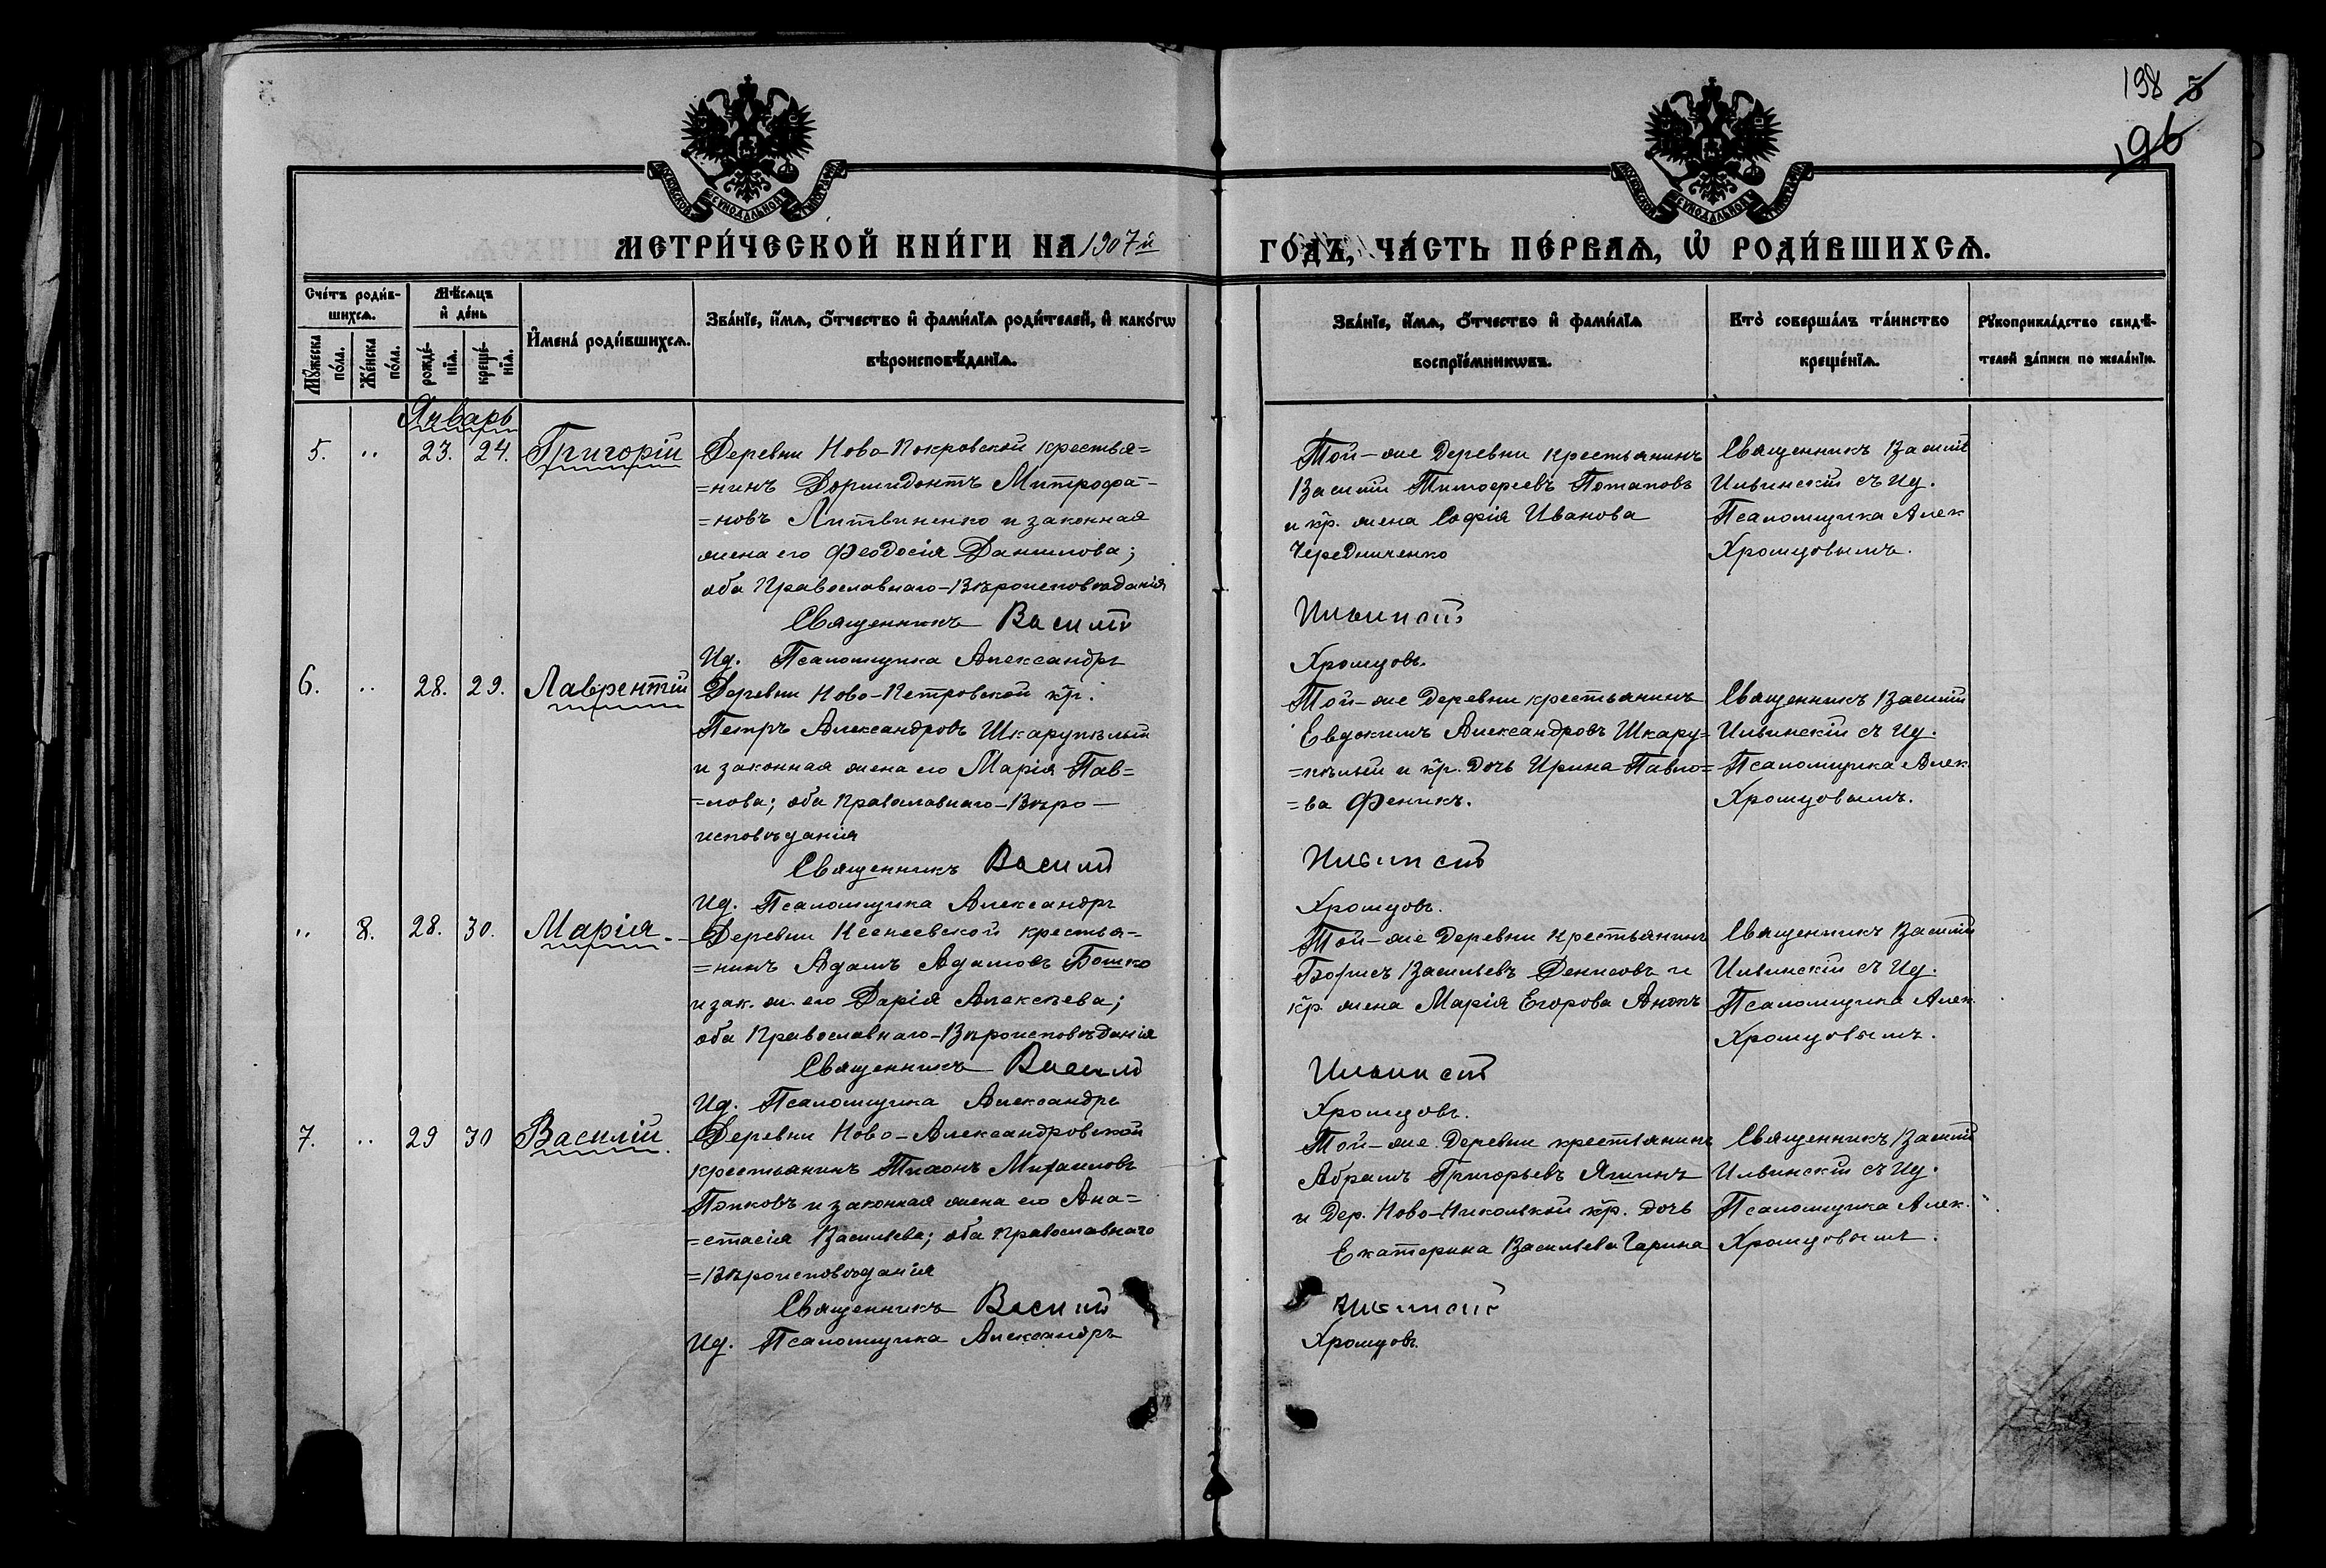 198 5
196
МОСКОВСКОЙ СѴНОДАЛЬНОЙ ТИПОГРАФІИ
МОСКОВСКОЙ СѴНОДАЛЬНОЙ ТИПОГРАФІИ
МЕТРИ́ЧЕСКОЙ КНИ́ГИ НА 1907й
ГО́ДЪ, ЧА́СТЬ ПЕ́РВАѦ, Ѡ҆ РОДИ́ВШИХСѦ.
Сче́тъ роди́в-
шихсѧ.
Мꙋ́жеска по́ла.
Же́нска по́ла.
Мѣ́сѧцъ
и҆ де́нь
рожде́-
нїѧ.
креще́-
нїѧ.
И҆мена̀ роди́вшихсѧ.
Зва́нїе, и҆́мѧ, ѻ҆́тчество и҆ фами́лїѧ роди́телей, и҆ како́гѡ
вѣроисповѣ́данїѧ.
Зва́нїе, и҆́мѧ, ѻ҆́тчество и҆ фами́лїѧ
воспрїе́мникѡвъ.
Кто̀ соверша́лъ та́инство
креще́нїѧ.
Рꙋкоприкла́дство свидѣ́-
телей за́писи по жела́нїю.
Январь
5. ·· 23. 24. Григорій
Деревни Ново-Покровской крестья=
=нинъ Дормидонтъ Митрофа-
=новъ Литвиненко и законная
жена его Феодосія Данилова;
оба Православнаго-Вѣроисповѣданія
Священникъ Василій
Ид. Псаломщика Александръ
Той-же деревни крестьянинъ
Василій Тимофеевъ Потаповъ
и кр. жена Софія Иванова
Чередниченко
Ильинскій
Хромцовъ.
Священникъ Василій
Ильинскій съ Ид.
Псаломщика Алек
Хромцовымъ.
6. ·· 28. 29. Лаврентій
Деревни Ново-Петровской кр.
Петръ Александровъ Шкарупѣлый
и законная жена его Марія Пав=
=лова; оба Православнаго-Вѣро-
исповѣданія
Священникъ Василій
Ид. Псаломщика Александръ
Той-же деревни крестьянинъ
Евдокимъ Александровъ Шкару=
=пѣлый и кр. дочь Ирина Павло=
=ва Феникъ.
Ильинскій
Хромцовъ.
Священникъ Василій
Ильинскій съ Ид.
Псаломщика Алек.
Хромцовымъ.
·· 8. 28. 30. Марія.
Деревни Ксенеевской крестья-
=нинъ Адамъ Адамовъ Бошко
и зак. ж. его Дарія Алексѣева;
оба Православнаго-Вѣроисповѣданія
Священникъ Василій
Ид. Псаломщика Александръ
Той-же деревни крестьянинъ
Борисъ Васильевъ Денисовъ и
кр. жена Марія Егорова
Ильинскій
Хромцовъ.
Священникъ Василій
Ильинскій съ Ид.
Псаломщика Алек.
Хромцовымъ.
7. ·· 29 30 Василій
Деревни Ново-Александровской
крестьянинъ Тихонъ Михаиловъ
Попковъ и законная жена его Ана=
=стасія Васильева; оба Православнаго
=Вѣроисповѣданія
Священникъ Василій
Ид. Псаломщика Александръ
Той-же деревни крестьянинъ
Абрамъ Григорьевъ Яшинъ
и дер. Ново-Никольской кр. дочь
Екатерина Васильева Гарина
Ильинскій
Хромцовъ.
Священникъ Василій
Ильинскій съ Ид.
Псаломщика Алек.
Хромцовымъ.